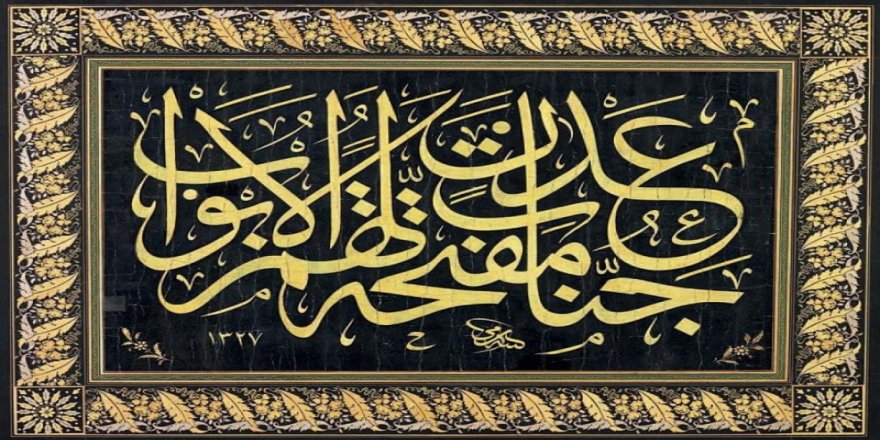 جنات عدن مفتحة لهم الابواب
١٣٢٧